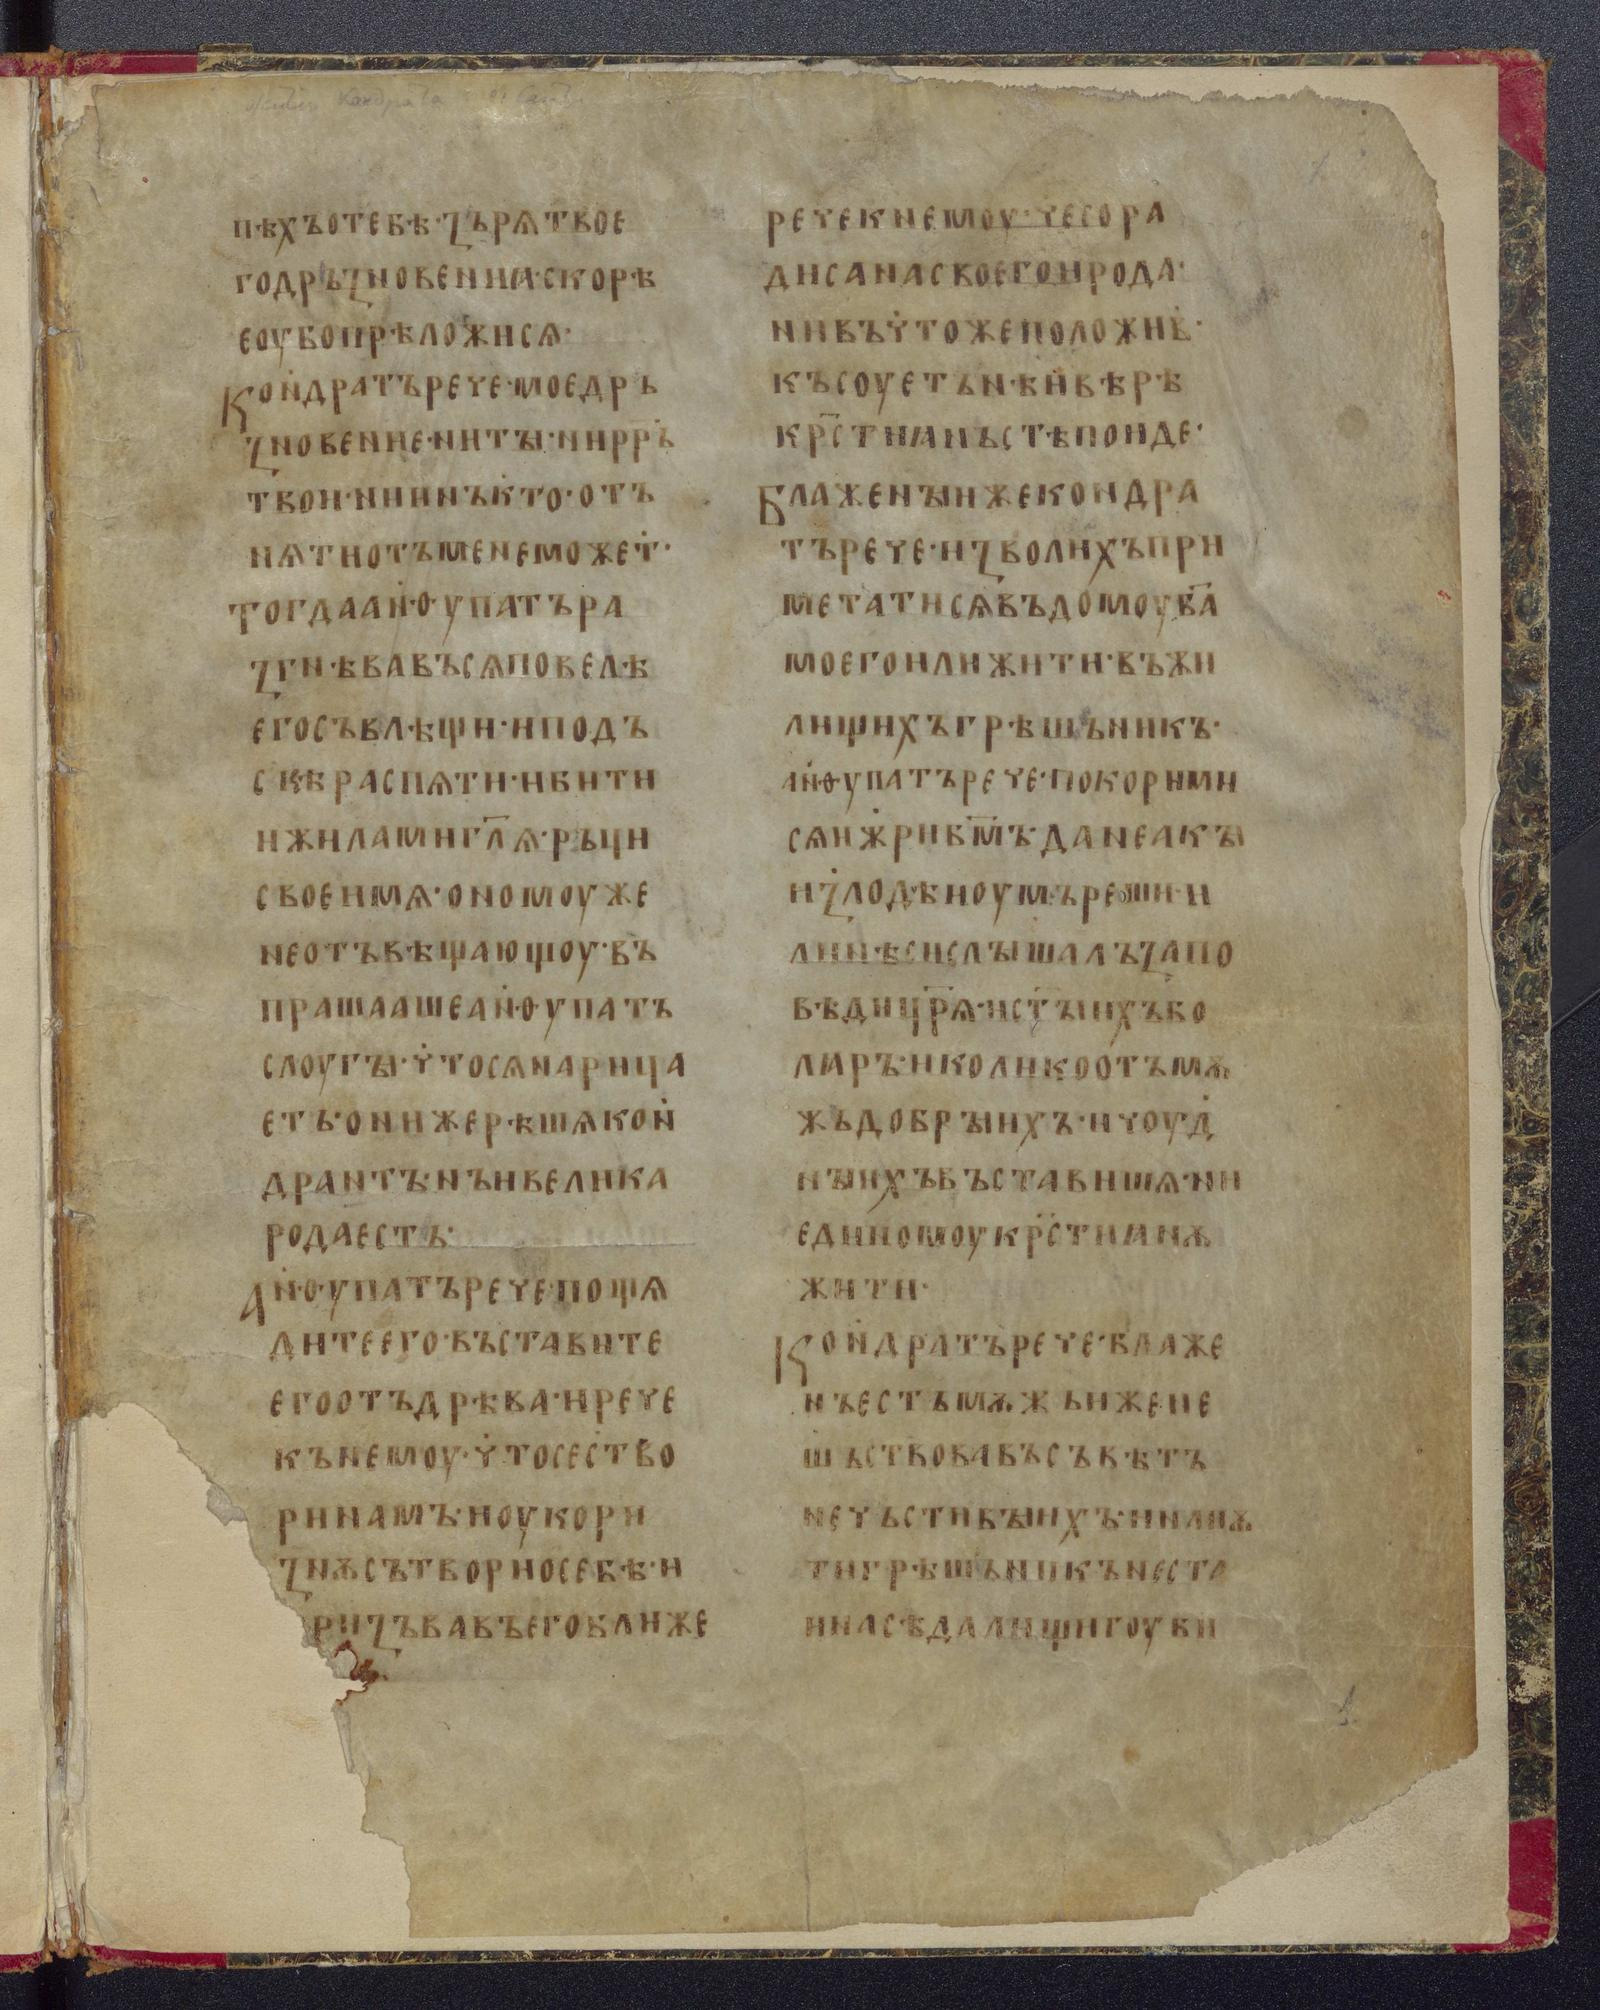 пѣхъотебѣ·ꙁьрѧтвое
годръꙁновениꙗ·скорѣ
еоубопрѣложисѧ·
Кон҆дратърече·моедрь
ꙁновение·ниты·нир҃рь
твои·нининъкъто·отъ
нѧтиотъменеможет҆·
Тогдаан҆ѳупатъра
ꙁгнѣвавъсѧповелѣ
егосъвлѣщи·иподъ
скѣраспѧти·ибити
ижиламигл҃ѧ·рьци
своеимѧ·ономоуже
неотъвѣщающоу·въ
прашаашеан҆ѳупатъ
слоугы·ч҆тосѧнарица
етъ·онижерѣшѧкон҆
дрантъ·нънвелика
родаестъ·
Ан҆ѳупатърече·пощѧ
дитеего·въставите
егоотъдрѣва·ирече
къ немоу·ч҆тосество
ринамъ·иоукори
ꙁнѫсътвориосебѣ·и
риꙁъвавъегоближе
речекнемоу·чесора
дисанасвоегоирода·
нивъч҆тожеположив҆·
късоуетьнѣив҆ѣрѣ
кр҃стиꙗнъстѣпоиде·
Блаженыижекондра
търече·иꙁволихъпри
метатисѧвъдомоуб҃а
моегоилижити·въжи
лищихъгрѣшьникъ·
ан҆ѳупатърече·покоримн
сѧиж҆рибм҃ъ·данеакы
иꙁ҆лодѣиоумьреши·и
линѣсислышалъꙁапо
вѣдицр҃ѧ·ист҃ыихъбо
лꙗръ·иколикоотъмѫ
жьдобрыихъ·ичоуд҆
ныихъвъставишѧ·ни
единомоукр҃стиꙗнѫ
жити·
Кон҆дратърече·блаже
нъестьмѫжьижене
шьствовавъсъвѣтъ
нечьстивыихъ·нинапѫ
тигрѣшьникънеста
нинасѣдалищигоуби